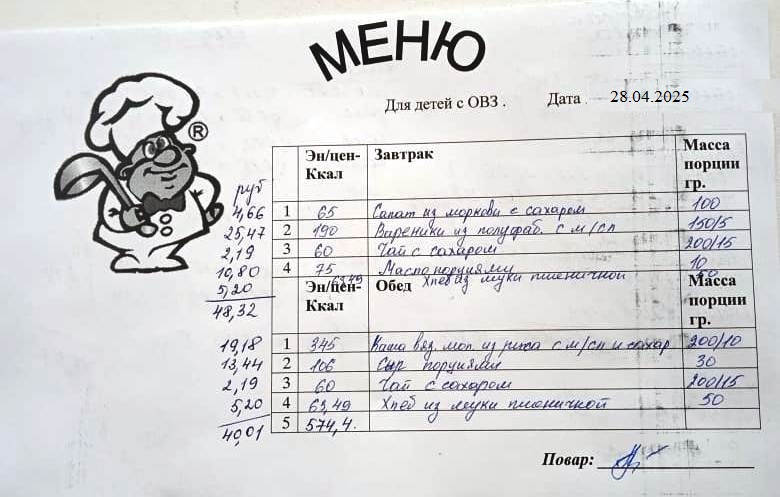 МЕНЮ
Для детей с ОВЗ . Дата 28.04.2025
®
Эн/цен- Ккал Завтрак Масса порции гр.
руб
4,66 1 65 Салат из моркови с сахаром 100
25,47 2 190 Вареники из полуфаб. с м/сл 150/5
2,19 3 60 Чай с сахаром 200/15
10,80 4 75 Масло порциями 10
5,20 63,49 Хлеб из муки пшеничной 50
48,32 Эн/цен- Ккал Обед Масса порции гр.
19,18 1 345 Каша вяз. мол. из риса с м/сл и сахар 200/10
13,44 2 106 Сыр порциями 30
2,19 3 60 Чай с сахаром 200/15
5,20 4 63,49 Хлеб из муки пшеничной 50
40,01 5 574,4.
Повар: